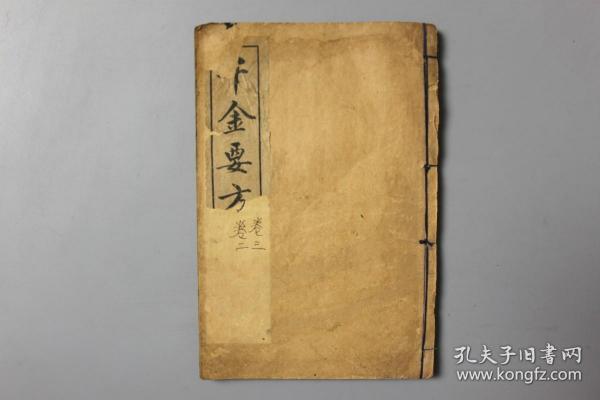 千金要方
卷三
卷二
孔夫子旧書网
www.kongfz.com